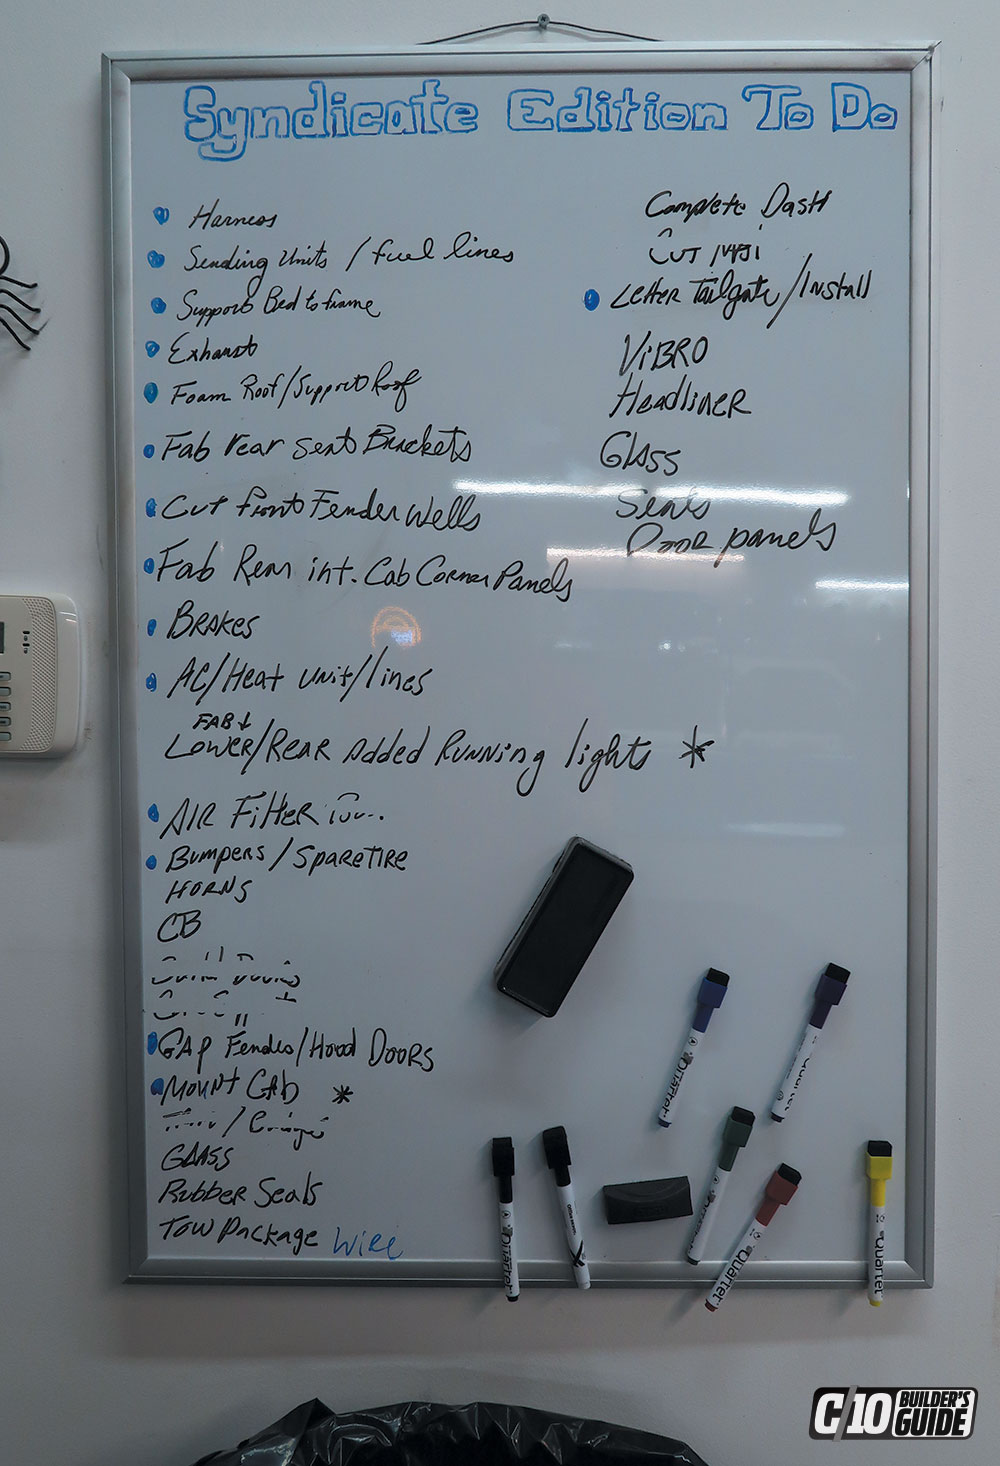 Syndicate Edition To Do
Harness
Sending Units / fuel lines
Support Bed to frame
Exhaust
Foam Roof/Support Roof
Fab rear seat Brackets
Cut front Fender Wells
Fab Rear int. Cab Corner Panels
BRAKES
AC/Heat unit/lines
FAB↓
LOWER/REAR Added Running lights *
AIR FilteR
Bumpers / SpareTIRE
HORNS
CB
GAP Fenders/Hood DOORS
MOUNT CAB *
GLASS
Rubber Seals
TOW Package Wire
Complete Dash
Cut
Letter Tailgate/Install
ViBRO
HeadlineR
GlAss
Seats
DooR panels
Quartet
Quartet
Quartet
Quartet
Quartet
C/10 BUILDER'S GUIDE